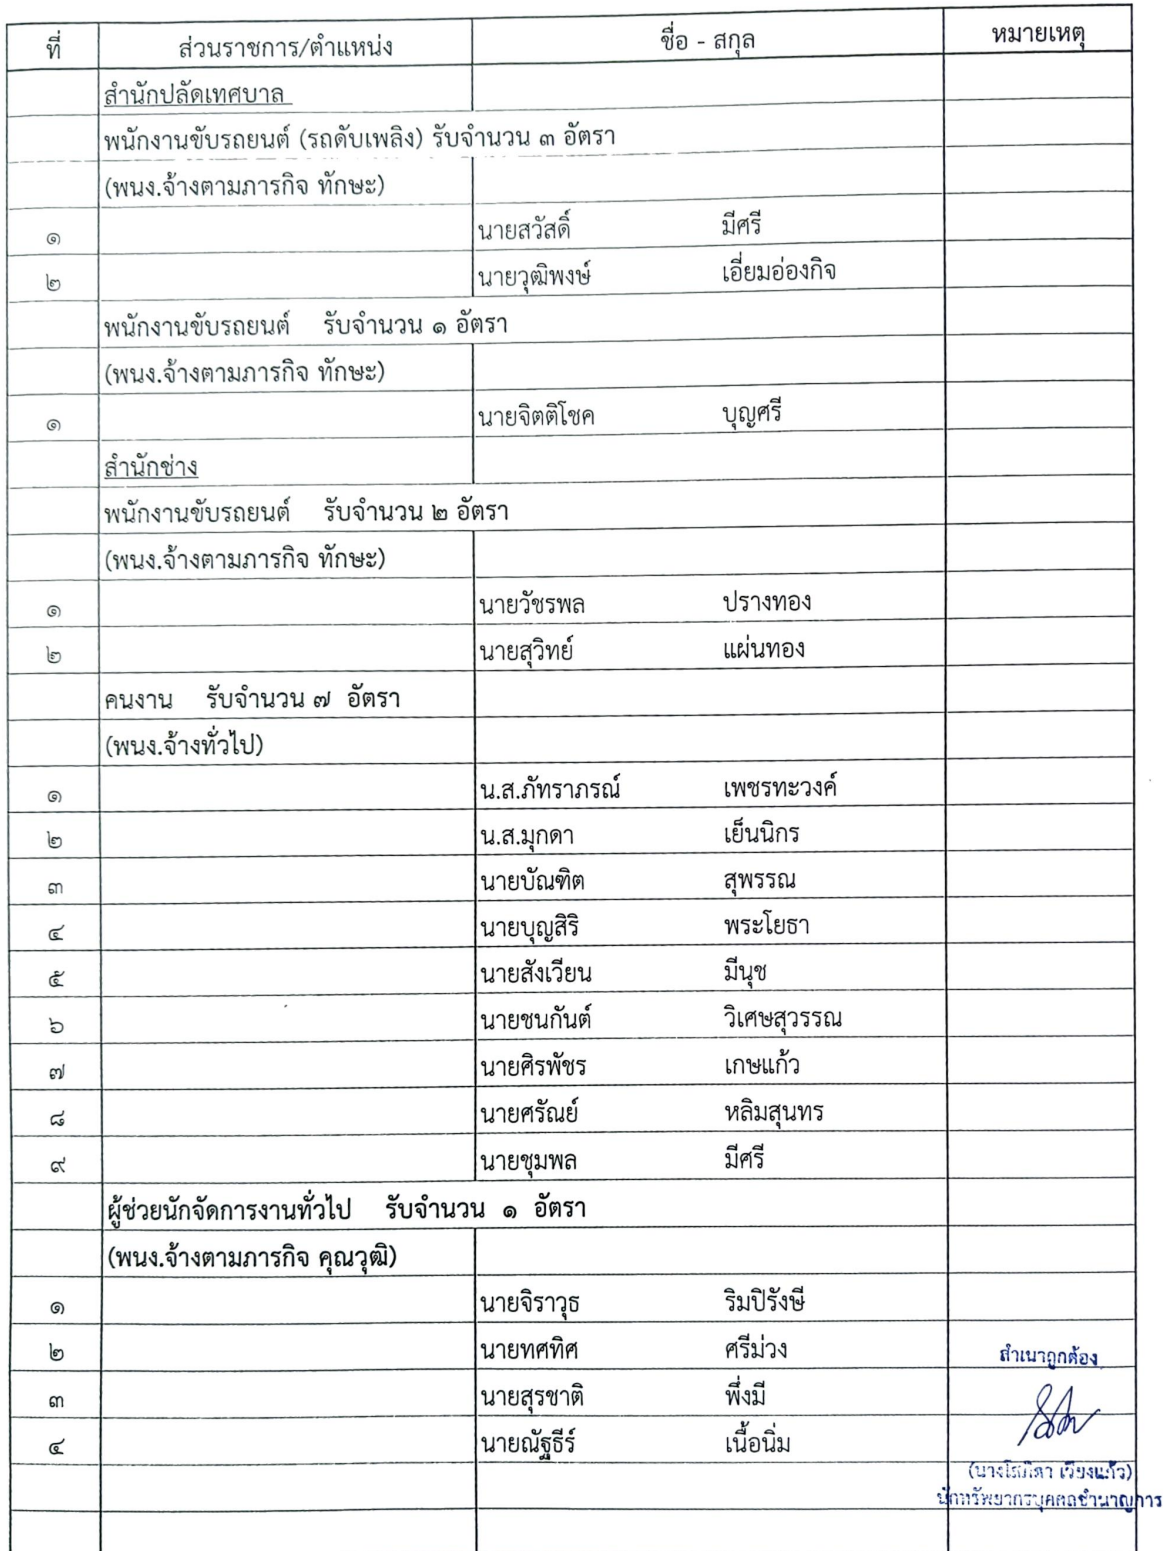 ที่ ส่วนราชการ/ตำแหน่ง ชื่อ - สกุล หมายเหตุ
สำนักปลัดเทศบาล
พนักงานขับรถยนต์ (รถดับเพลิง) รับจำนวน ๓ อัตรา
(พนง.จ้างตามภารกิจ ทักษะ)
๑ นายสวัสดิ์ มีศรี
๒ นายวุฒิพงษ์ เอี่ยมอ่องกิจ
พนักงานขับรถยนต์ รับจำนวน ๑ อัตรา
(พนง.จ้างตามภารกิจ ทักษะ)
๑ นายจิตติโชค บุญศรี
สำนักช่าง
พนักงานขับรถยนต์ รับจำนวน ๒ อัตรา
(พนง.จ้างตามภารกิจ ทักษะ)
๑ นายวัชรพล ปรางทอง
๒ นายสุวิทย์ แผ่นทอง
คนงาน รับจำนวน ๗ อัตรา
(พนง.จ้างทั่วไป)
๑ น.ส.ภัทราภรณ์ เพชรทะวงค์
๒ น.ส.มุกดา เย็นนิกร
๓ นายบัณฑิต สุพรรณ
๔ นายบุญสิริ พระโยธา
๕ นายสังเวียน มีนุช
๖ นายชนกันต์ วิเศษสุวรรณ
๗ นายศิรพัชร เกษแก้ว
๘ นายศรัณย์ หลิมสุนทร
๙ นายชุมพล มีศรี
ผู้ช่วยนักจัดการงานทั่วไป รับจำนวน ๑ อัตรา
(พนง.จ้างตามภารกิจ คุณวุฒิ)
๑ นายจิราวุธ ริมปิรังษี
๒ นายทศทิศ ศรีม่วง
สำเนาถูกต้อง
๓ นายสุรชาติ พึ่งมี
๔ นายณัฐธีร์ เนื้อนิ่ม
(นางโสภิตา เวียงแก้ว)
นักทรัพยากรบุคคลชำนาญการ